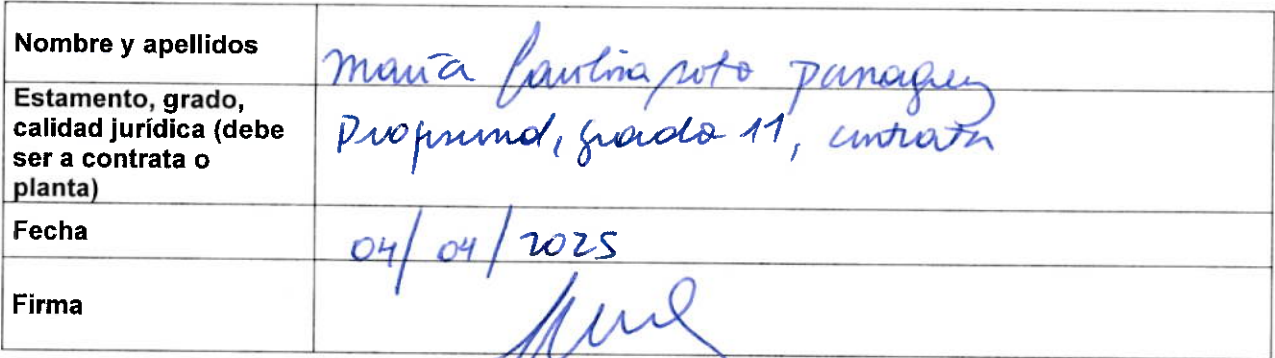 Nombre y apellidos
María Carolina Soto
Estamento, grado,
calidad jurídica (debe
ser a contrata o
planta)
Profesional, grado 11, contrata
Fecha
04/04/2025
Firma